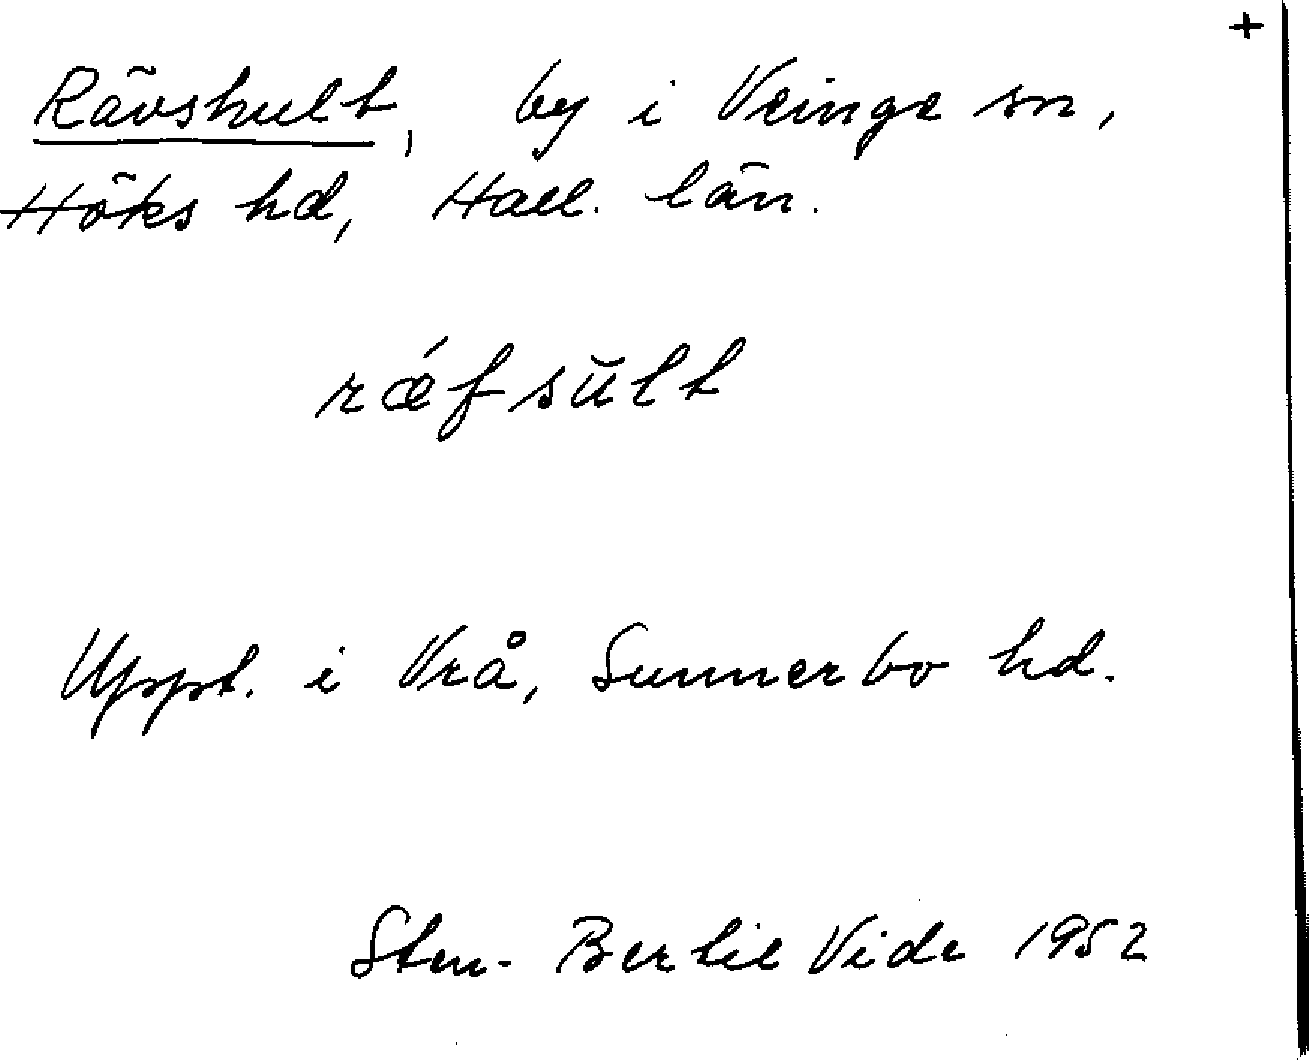 +
Rävshult, by i Veinge sn,
Höks hd, Hall. län.
rǽfsŭlt
Uppt. i Vrå, Sunnerbo hd.
Sten-Bertil Vide 1952